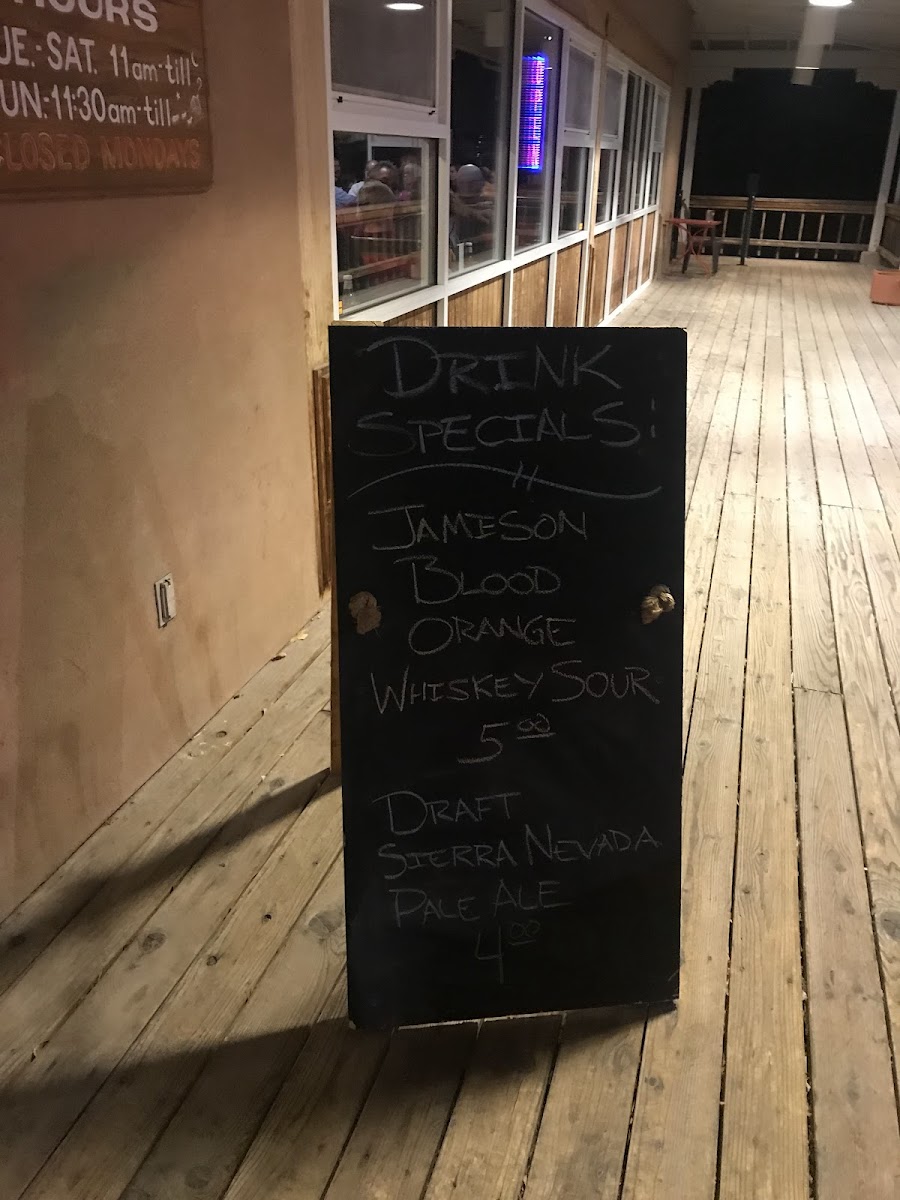 HOURS
UE.-SAT. 11am-till
UN.-11:30am-till
CLOSED MONDAYS
DRINK
SPECIALS:
JAMESON
BLOOD
ORANGE
WHISKEY SOUR
5.00
DRAFT
SIERRA NEVADA
PALE ALE
4.00